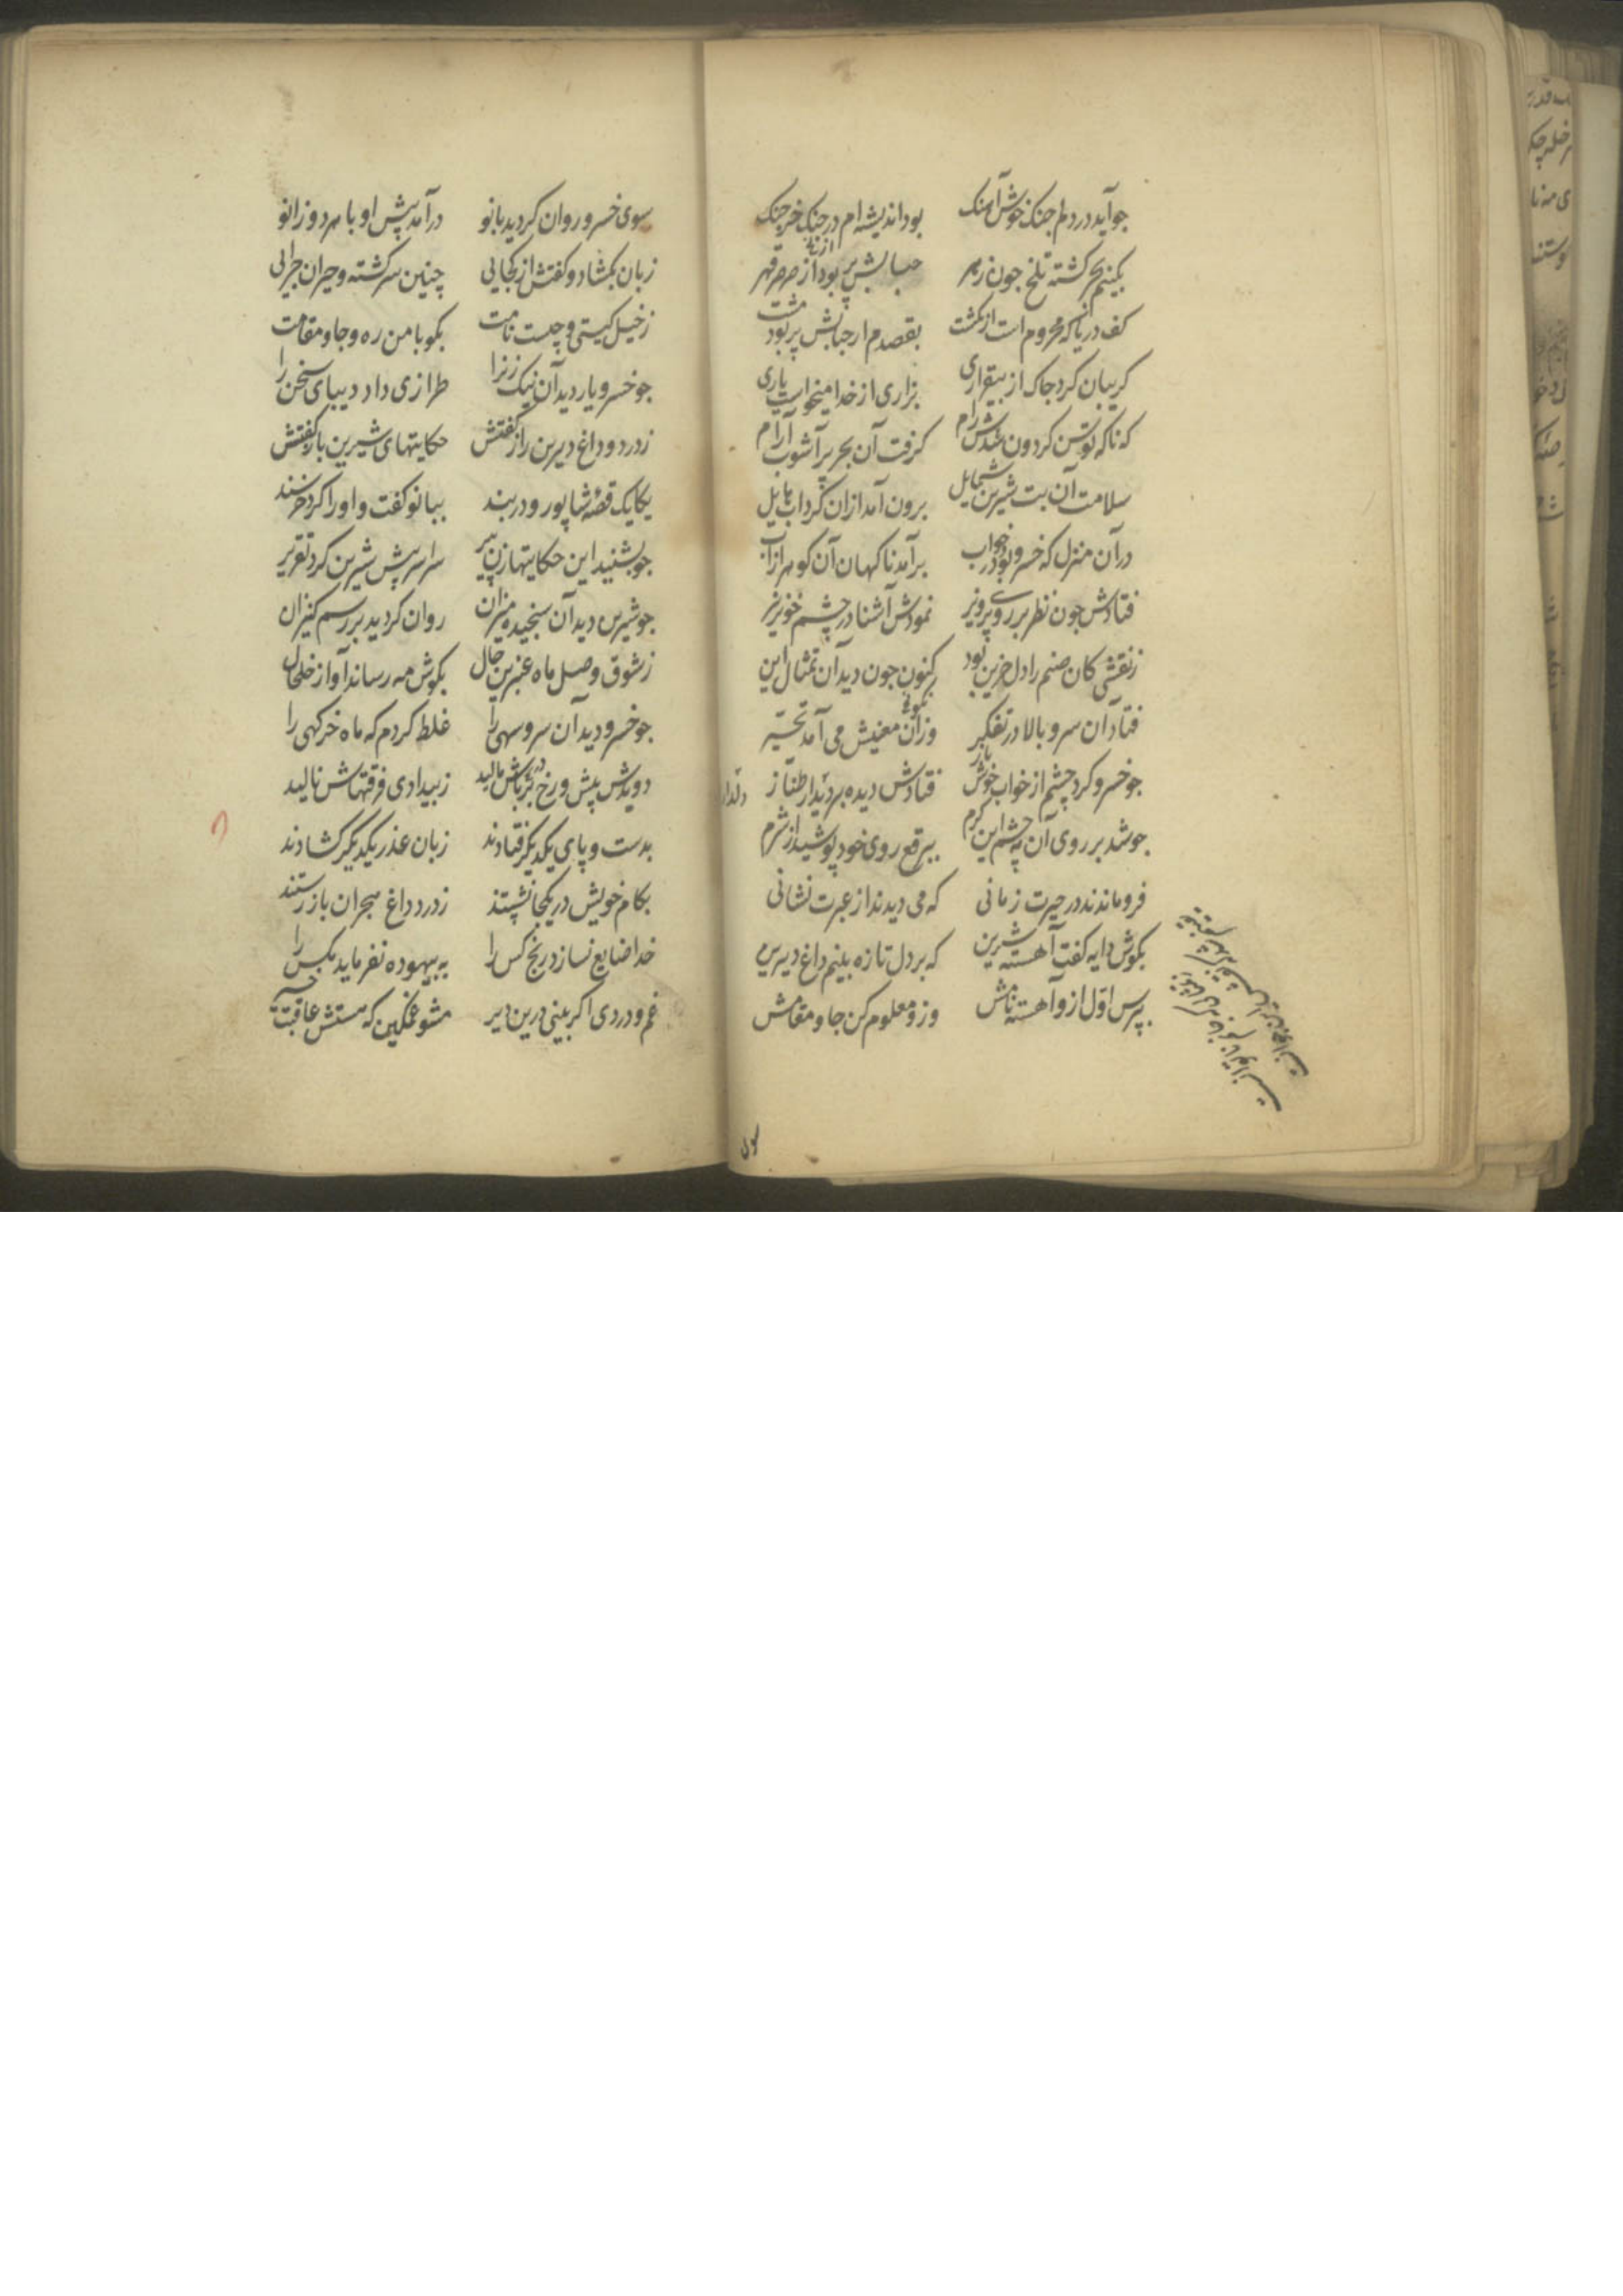 جو آید در دلم جنک خوش آهنک بود اندیشه ام در جنک خرجنک
بکینم بحر کشته تلخ جون زهر حبابش پر بود از صرصر قهر
کف دریا که محروم است از کشت بقصدم از حبابش پر بود مشت
کریبان کرد جاک از بیقراری بزاری از خدا میخواست یاری
که ناکه توسن کردون شدش رام کرفت آن بحر پر آشوب آرام
سلامت آن بت شیرین شمایل برون آمد ازان کرداب هایل
در آن منزل که خسرو بود در خواب برآمد ناکهان آن کوهر از آب
فتادش جون نظر بر روی پرویز نمودش آشنا در چشم خونریز
ز نقشی کان صنم را دل حزین بود کنون جون دید آن تمثال این بود
فتاد آن سرو بالا در تفکر وزان معنیش می آمد تحیر
جو خسرو کرد چشم از خواب خوش باز فتادش دیده بر دیدار طناز
دلدار
جو شد بر روی آن مه چشم این کرم ببرقع روی خود پوشید از شرم
فرو ماندند در حیرت زمانی که می دیدند از عبرت نشانی
بکوش دایه کفت آهسته شیرین که بر دل تازه بینم داغ دیرین
بپرس اول ازو آهسته نامش وزو معلوم کن جا و مقامش
سوی
سوی خسرو روان کردید بانو درآمد پیش او با هر دو زانو
زبان بکشاد و کفتش از کجایی چنین سرکشته و حیران چرایی
ز خیل کیستی و چیست نامت بکو با من ره و جا و مقامت
جو خسرو یار دید آن نیک زن را طرازی داد دیبای سخن را
ز درد و داغ دیرین راز کفتش حکایتهای شیرین باز کفتش
یکایک قصه شاپور و دربند ببانو کفت و او را کرد خرسند
جو بشنید این حکایتها زن پیر سراسر پیش شیرین کرد تقریر
جو شیرین دید آن سنجیده میزان روان کردید بر رسم کنیزان
ز شوق وصل ماه عنبرین خال بکوش مه رساند آواز خلخال
جو خسرو دید آن سرو سهی را غلط کردم که ماه خرکهی را
دویدش پیش و رخ در پاش مالید ز بیدادی فرقتهاش نالید
بدست و پای یکدیکر فتادند زبان عذر یکدیکر کشادند
بکام خویش در یکجا نشستند ز درد داغ هجران باز رستند
خدا ضایع نسازد رنج کس را به بیهوده نفرماید مکس را
غم و دردی اکر بینی درین دیر مشو غمکین که هستش عاقبت خیر